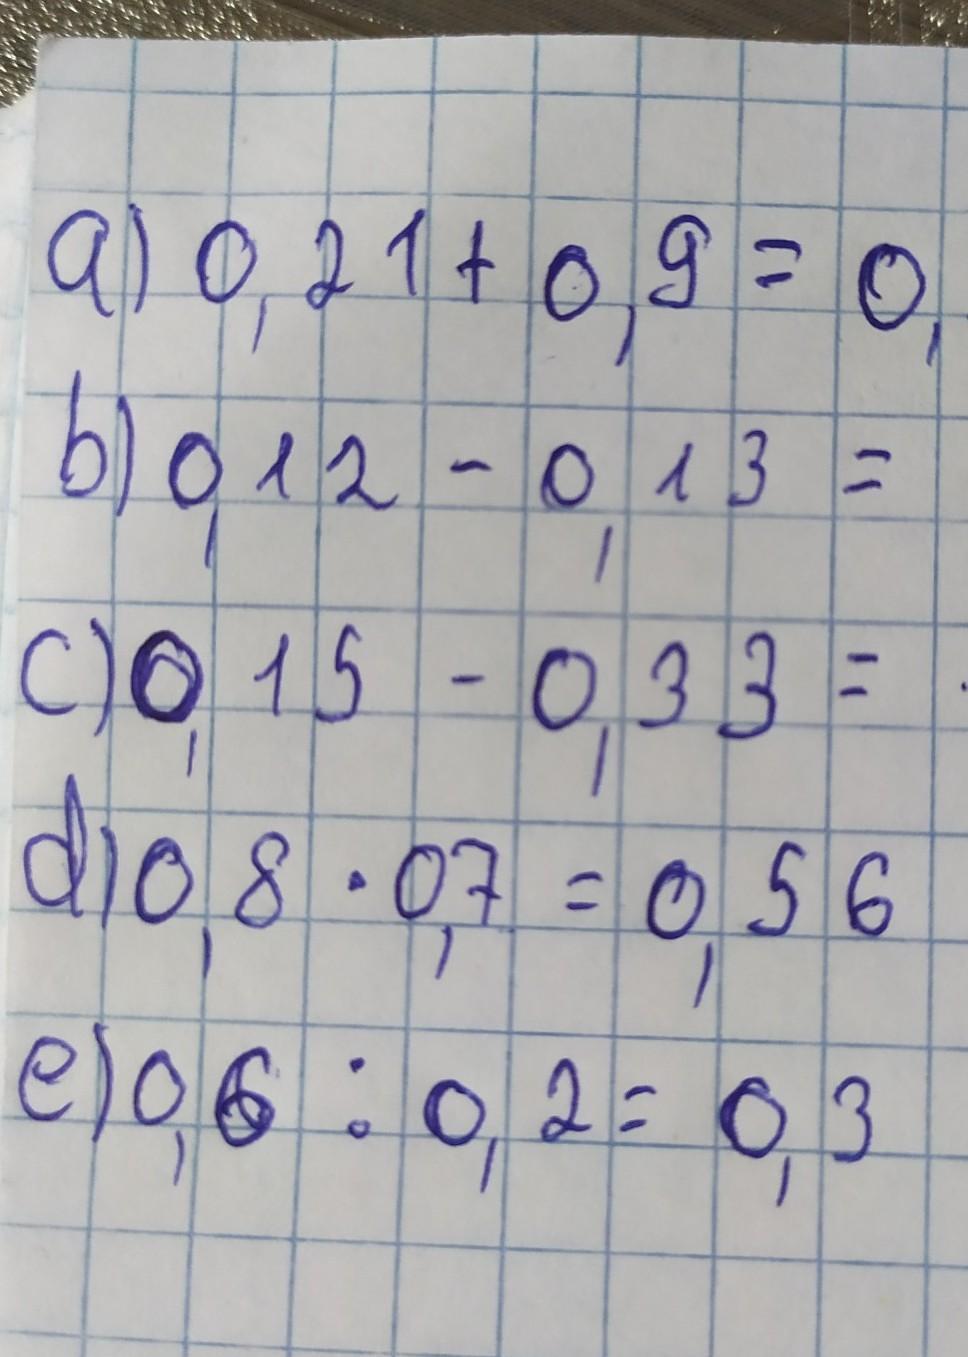 a) 0,21 + 0,9 = 0,
b) 0,12 - 0,13 =
c) 0,15 - 0,33 =
d) 0,8 · 0,7 = 0,56
e) 0,6 : 0,2 = 0,3